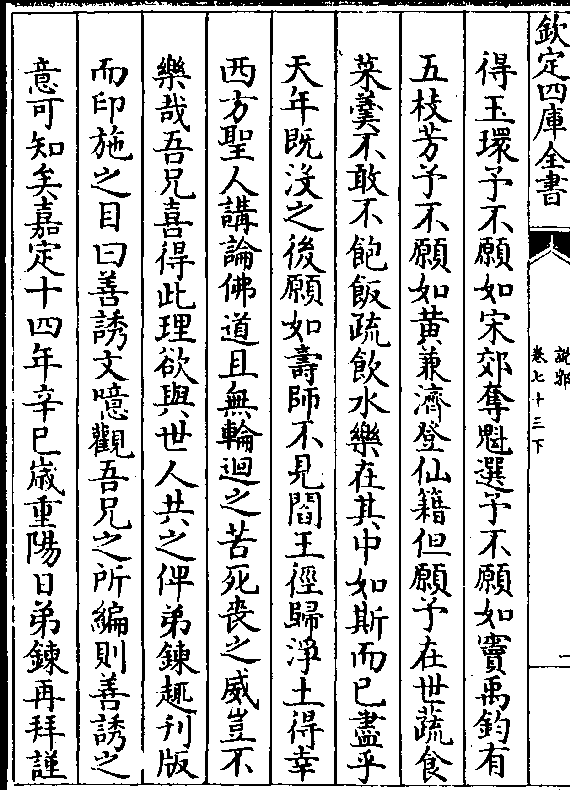 欽定四庫全書
說郛
卷七十三下
一
得玉環予不願如宋郊奪魁選予不願如竇禹鈞有
五枝芳予不願如黄兼濟登仙籍但願予在世蔬食
菜羮不敢不飽飯疏飲水樂在其中如斯而已盡乎
天年既沒之後願如壽師不見閻王徑歸淨土得幸
西方聖人講論佛道且無輪迴之苦死喪之威豈不
樂哉吾兄喜得此理欲與世人共之俾弟鍊趣刊版
而印施之目曰善誘文噫觀吾兄之所編則善誘之
意可知矣嘉定十四年辛巳嵗重陽日弟鍊再拜謹